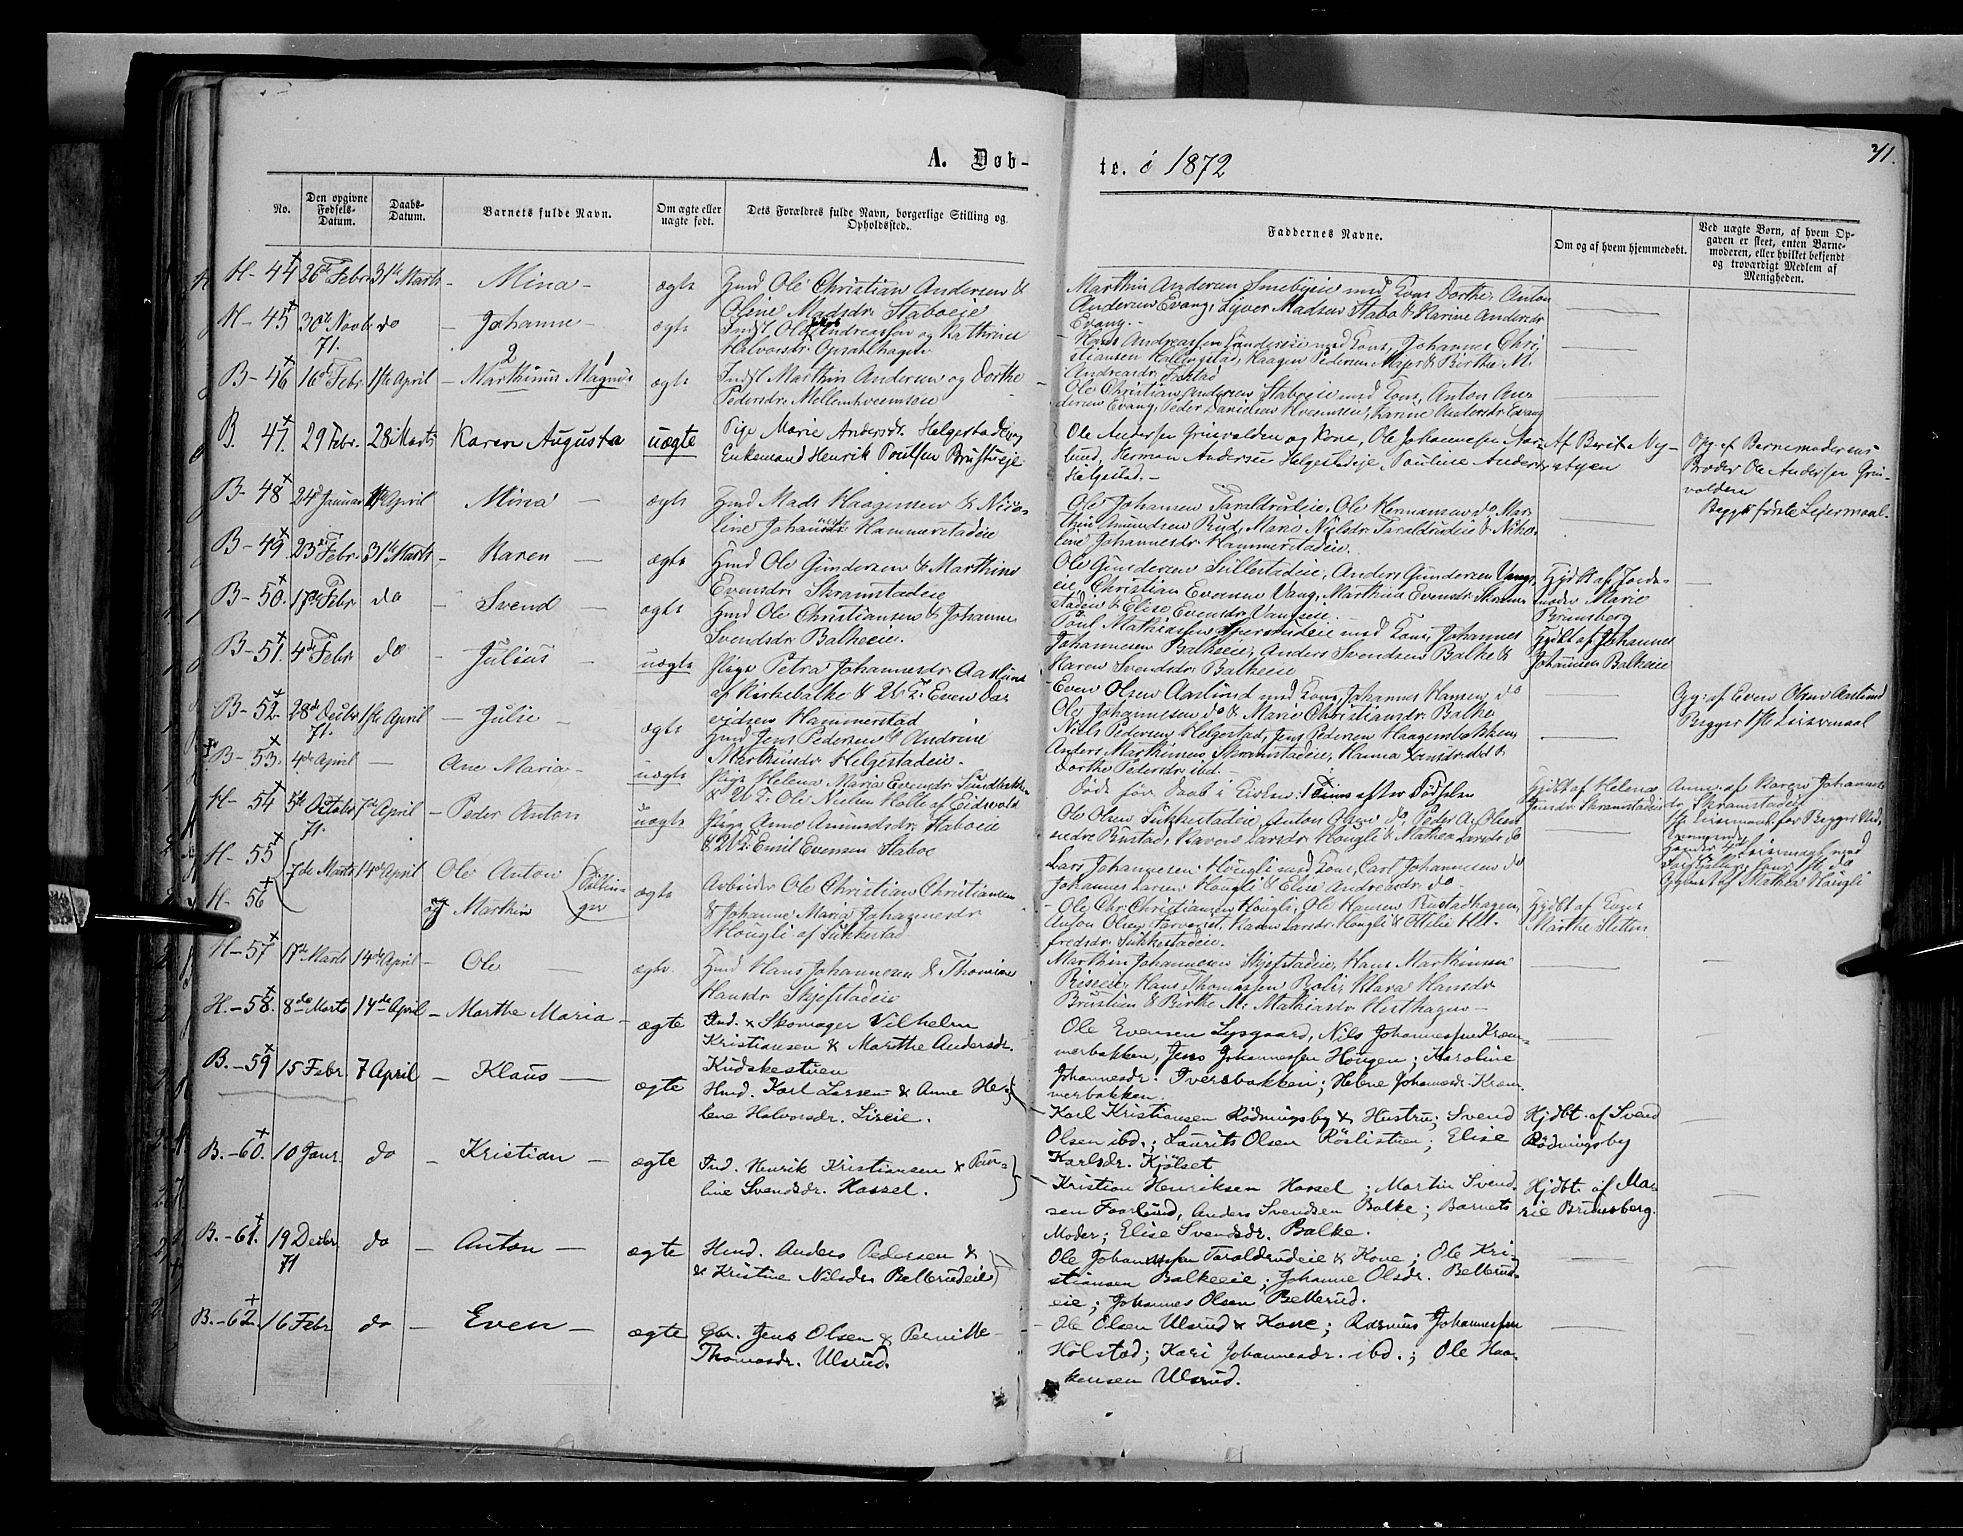 A. Døb-
te. i 1872
71.
No.
Den opgivne Fødsels-Datum.
Daabs-Datum.
Barnets fulde Navn.
Om ægte eller uægte født.
Dets Forældres fulde Navn, borgerlige Stilling og Opholdssted.
Faddernes Navne.
Om og af hvem hjemmedøbt.
Ved uægte Børn, af hvem Opgaven er skeet, enten Barnemoderen, eller hvilket bekjendt og troværdigt Medlem af Menigheden.
H-44 26de Febr 31te Marts - Mina - ægte Hmd Ole Christian Andersen &
Oline Madsdr. Staboeie
Marthin Andersen Smebyeie med Kone Dorthe, Anton
Andersen Evang, Syver Madsen Stabo & Karine Andersdr
Evang.-
H-45 30te Novb. 71. do - Johanne - ægte Indst Ole Andreassen og Kathrine
Halvorsdr. Opsahlhagen
Hans Andreassen med Kone, Johannes Chri-
stiansen Hallingstad, Haagen Pedersen Majer & Birthe M.
Andreasdr.
B-46 16de Febr 1ste April - Marthinus Magnus ægte Indst Marthin Andersen og Dorthe
Pedersdr. Mellemkveemseie
Ole Christian Andersen Staboeie med Kone, Anton An-
dersen Evang, Peder Danielsen Hveemseie, Karine Andersdr Evang
B. 47. 29 Febr. 28 Marts Karen Augusta uægte Pige Marie Andersdr. Helgestadeie og
Enkemand Henrik Poulsen Brustueie
Ole Andersen Grinvolden og Kone, Ole Johannesen Aas-
lund, Herman Andersen Helgestadeie, Pauline Andersdr
Helgestad.-
Af Berit Ny-
styen
Opg. af Barnemoderens
Broder Ole Andersen Grin-
volden
Begges første Leiermaal.
B-48 24de Januar 1ste April Mina - ægte Hmd Mads Haagensen & Niko-
line Johannesdr. Hammerstadeie
Ole Johansen Taraldrudeie, Ole Hermansen do Mar-
thin Amundsen Rud, Marie Nielsdr. Taraldrudeie & Niko-
line Johannesdr. Hammerstadeie.
B-49 23de Febr. 31te Marts - Karen - ægte Hmd Ole Gundersen & Marthine
Evensdr. Skramstadeie
Ole Gundersen Sillestadeie, Anders Gundersen Vangs-
eie, Christian Evensen Vang, Marthea Evensdr. Skram-
stadeie & Elise Evensdr. Vangseie.
Hjdbt af Jorde-
moder Marie
Brunsberg
B-50. 17de Febr. do - Svend - ægte Hmd Ole Christiansen & Johanne
Svendsdr. Balkeeie.
Poul Mathiassen med Kone, Johannes
Johannesen Balkeeie, Anders Svendsen Balke &
Karen Svendsdr. Balkeeie
Hjdbt af Johannes
Johannesen Balkeeie
B-51. 4de Febr. do - Julius - uægte Pige Petra Johannesdr. Aaslund
af Kirkebalke & Even Da-
vidsen Hammerstad
Even Olsen Aaslund med Kone, Johannes Hansen do
Ole Johannesen do & Marie Christiansdr. Balke
Opg: af Even Olsen Aaslund
Begges 1ste Leiermaal
B-52 28de Decbr 71. 1ste April - Julie - ægte Hmd Jens Pedersen & Andrine
Marthinsdr. Helgestadeie.
Niels Pedersen Helgestad, Jens Pedersen Haagensbakken,
Anders Marthinsen Skramstadeie, Hanna Jensdr. ibd &
Dorthe Pedersdr. ibd.-
B-53. 4de April - Ane Maria - uægte Pige Helena Maria Evensdr. Sundbakken
& Ole Nielsen Holle af Eidsvold
Død før Daab i Kirken: 1 Time efter Fødselen
Hjdbt af Helena
Jensdr. Skramstadeie
Anm: af Karen Johannes-
dr. Skramstadeie
H-54 5te Octobr 71. 7de April - Peder Anton uægte Pige Anne Amundsdr. Staboeie
& Emil Evensen Staboe
Ole Olsen Sukkestadeie, Anton Olsen do, Peder A. Olsen
Brustad, Karen Larsdr. Hougli & Mathea Larsdr. do
H-55 7de Marts 14de April Ole Anton Tvillinger
Lars Johannesen Hougli med Kone, Carl Johannesen do
Johannes Larsen Hougli & Elise Andreasdr. do
H-56 og Marthin ægte Arbeider Ole Christian Christiansen
& Johanne Maria Johannesdr.
Hougli af Sukkestad
Ole Chr. Christiansen Hougli, Ole Hansen Rustadhagen,
Anton Olsen Farveriet, Karen Larsdr. Hougli &
fredsdr. Sukkestadeie.
Hjdbt af Kone
Marthe Sletten
H-57 17de Marts 14de April - Ole - ægte. Hmd Hans Johannesen & Thomine
Hansdr. Skjefstadeie
Marthin Johannesen Skjefstadeie, Hans Marthinsen
Riseeie, Hans Thomassen Roli, Klara Hansdr.
Brustuen & Birthe M. Mathiasdr. Herthagen-
H.-58. 8de Marts 14de April - Marthe Maria - ægte Ind. & Skomager Vilhelm
Kristiansen & Marthe Andersdr.
Kudskestuen
Ole Evensen Lysgaard, Nils Johannessen Kræm-
merbakken, Jens Johannessen Hougen; Karoline
Johannesdr. Iversbakken; Helene Johannesdr. Kræm-
merbakken.
B.-59 15 Febr. 7 April - Klaus - ægte Hmd. Karl Larsen & Anne He-
lene Halvorsdr. Lieie.
Karl Kristiansen Rødningsby & Hustru; Svend
Olsen ibd.; Laurits Olsen Røslistuen; Elise
Karlsdr. Kjølset
Hjdbt. af Svend
Rødningsby
B.-60. 10 Janr. do - Kristian - ægte Ind. Henrik Kristiansen & Pau-
line Svendsdr. Hassel.
Kristian Henriksen Hassel; Martin Svend-
sen Faarlund, Anders Svendsen Balke; Barnets
Moder; Elise Svendsdr. Balke.
Hjdbt. af Ma-
rie Brunsberg.
B.-61. 19 Decbr. 71 do - Anton - ægte Hmd. Anders Pedersen &
& Kristine Nilsdr. Bellerudeie
Ole Johannessen Taraldrudeie & Kone; Ole Kri-
stiansen Balkeeie; Johanne Olsdr. Bellerud-
eie; Johannes Olsen Bellerud.
B.-62. 16 Febr do - Even - ægte Gbr. Jens Olsen & Pernille
Thomasdr. Ulsrud.
Ole Olsen Ulsrud & Kone; Rasmus Johannessen
Holstad; Kari Johannesdr. ibd.; Ole Haa-
kensen Ulsrud.